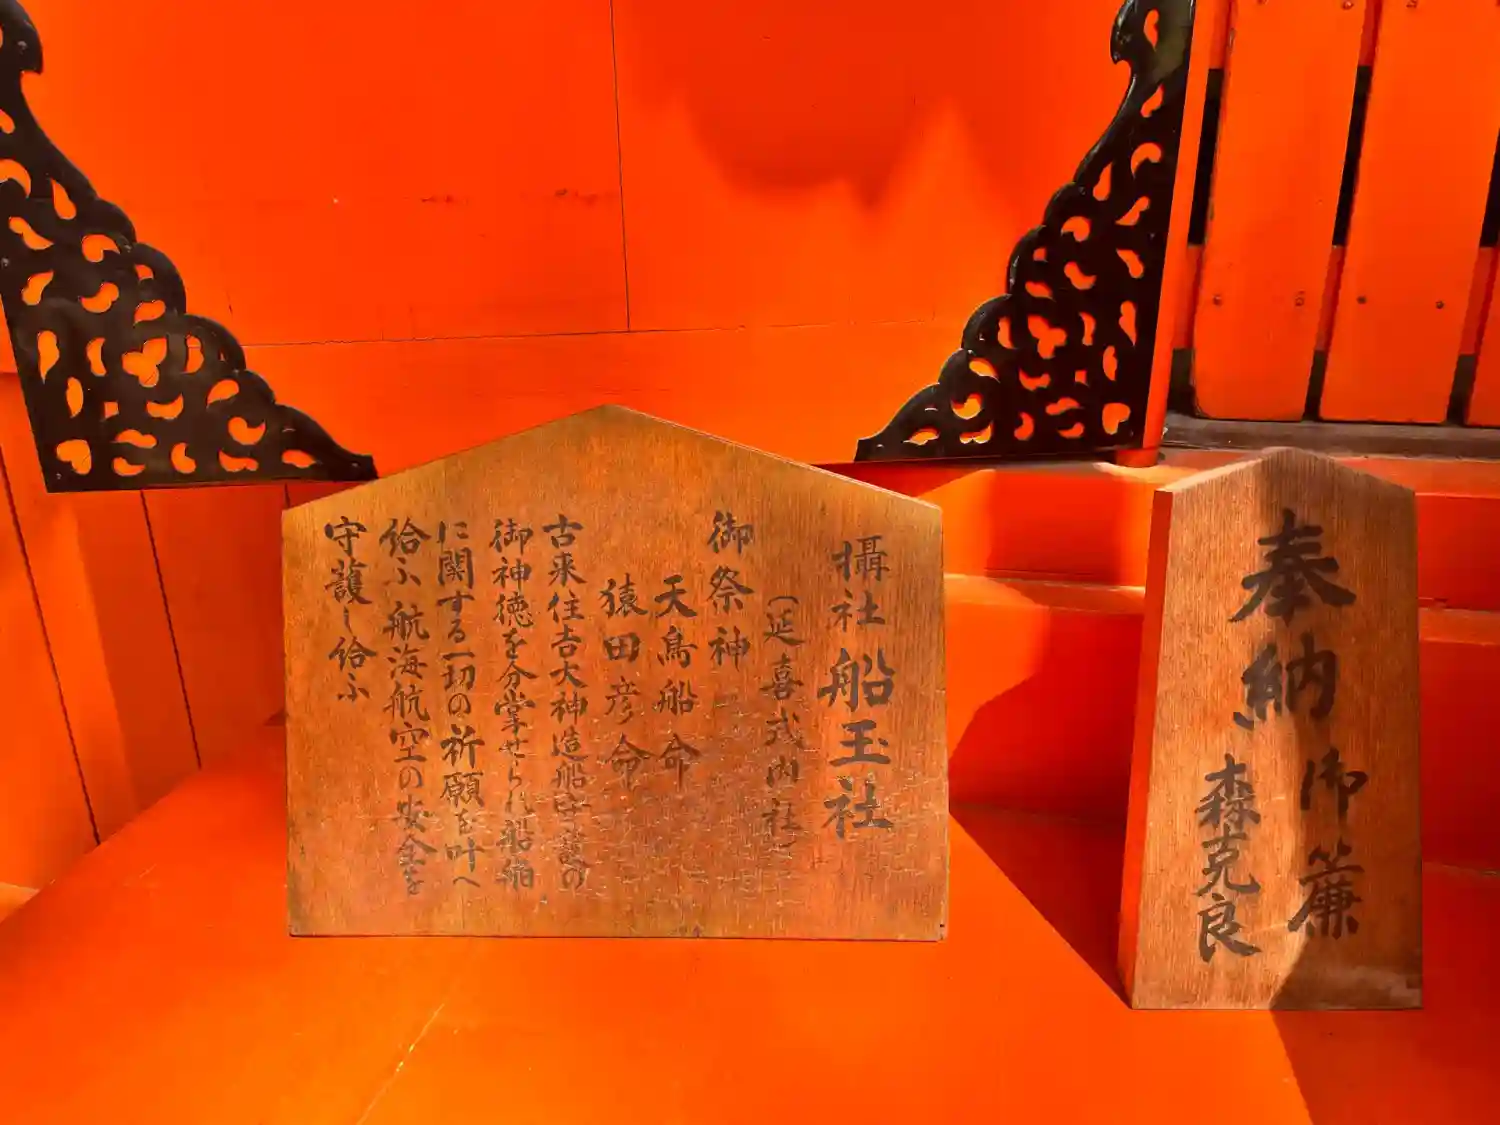 攝社 船玉社
（延喜式内社）
御祭神
天鳥船命
猿田彦命
古来住吉大神造船関諸の
御神徳を分掌せられ船舶
に関する一切の祈願を叶へ
給ふ航海航空の安全を
守護し給ふ
奉納 御簾
森克良